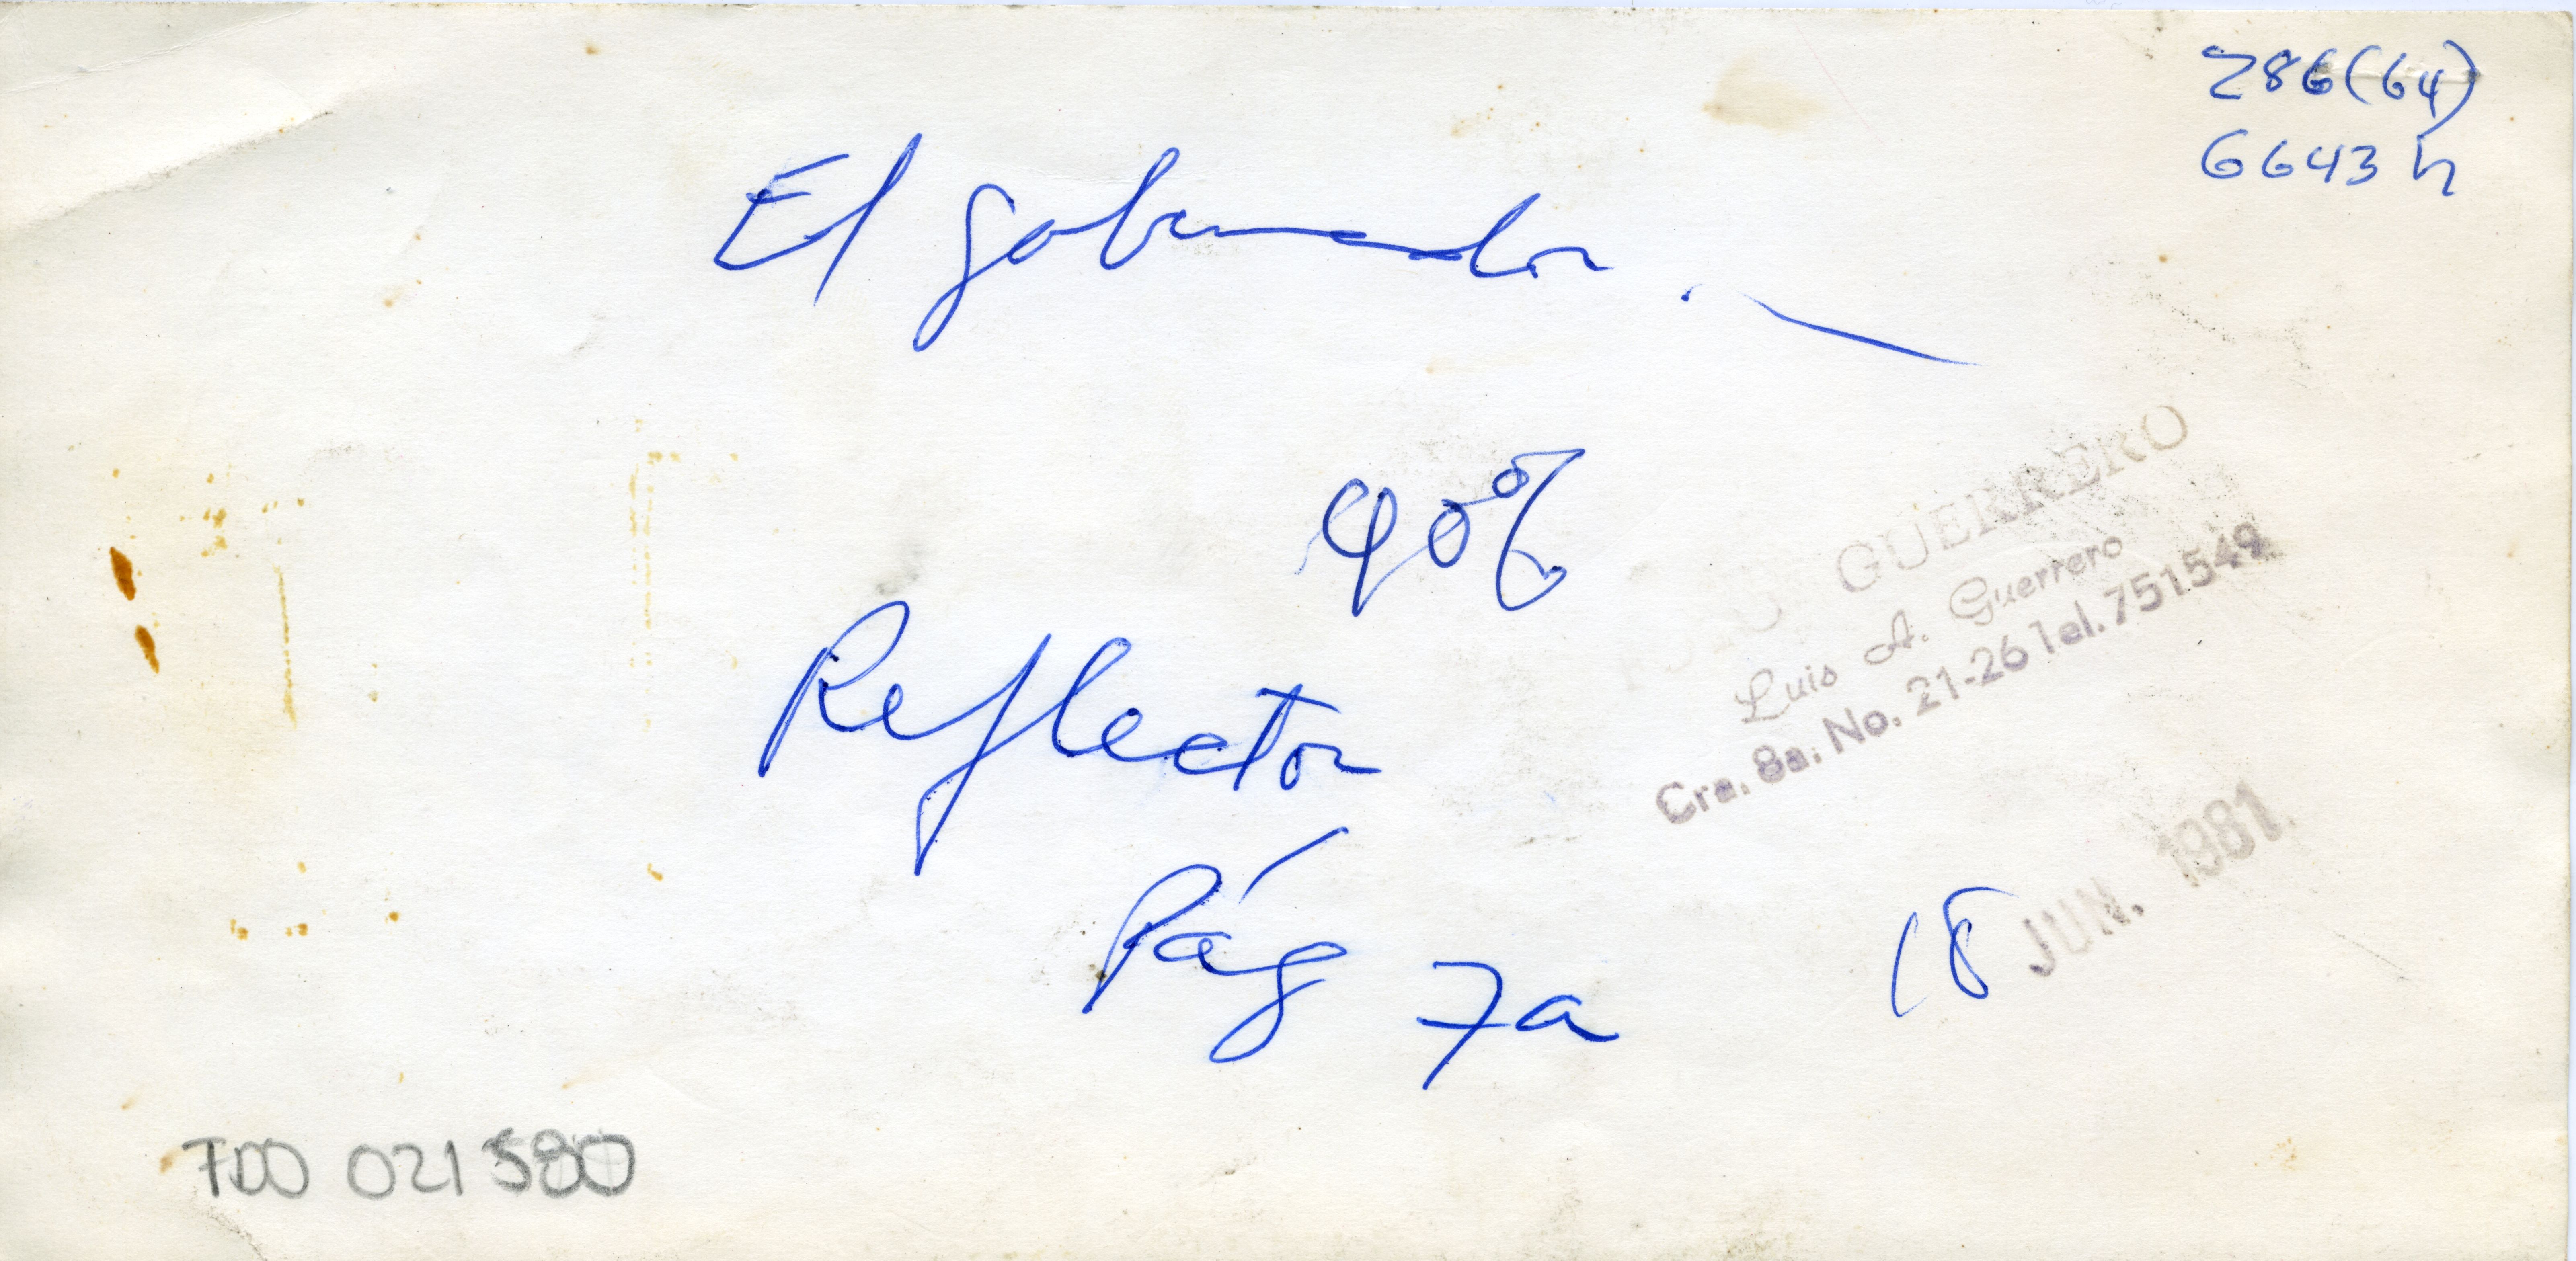 286(64)
6643 h
El gobernador.
90%
Reflector
Pág 7a
FOTO GUERRERO
Luis A. Guerrero
Cra. 8a. No. 21-26 Tel. 751549
18 JUN. 1981
7DO 021580